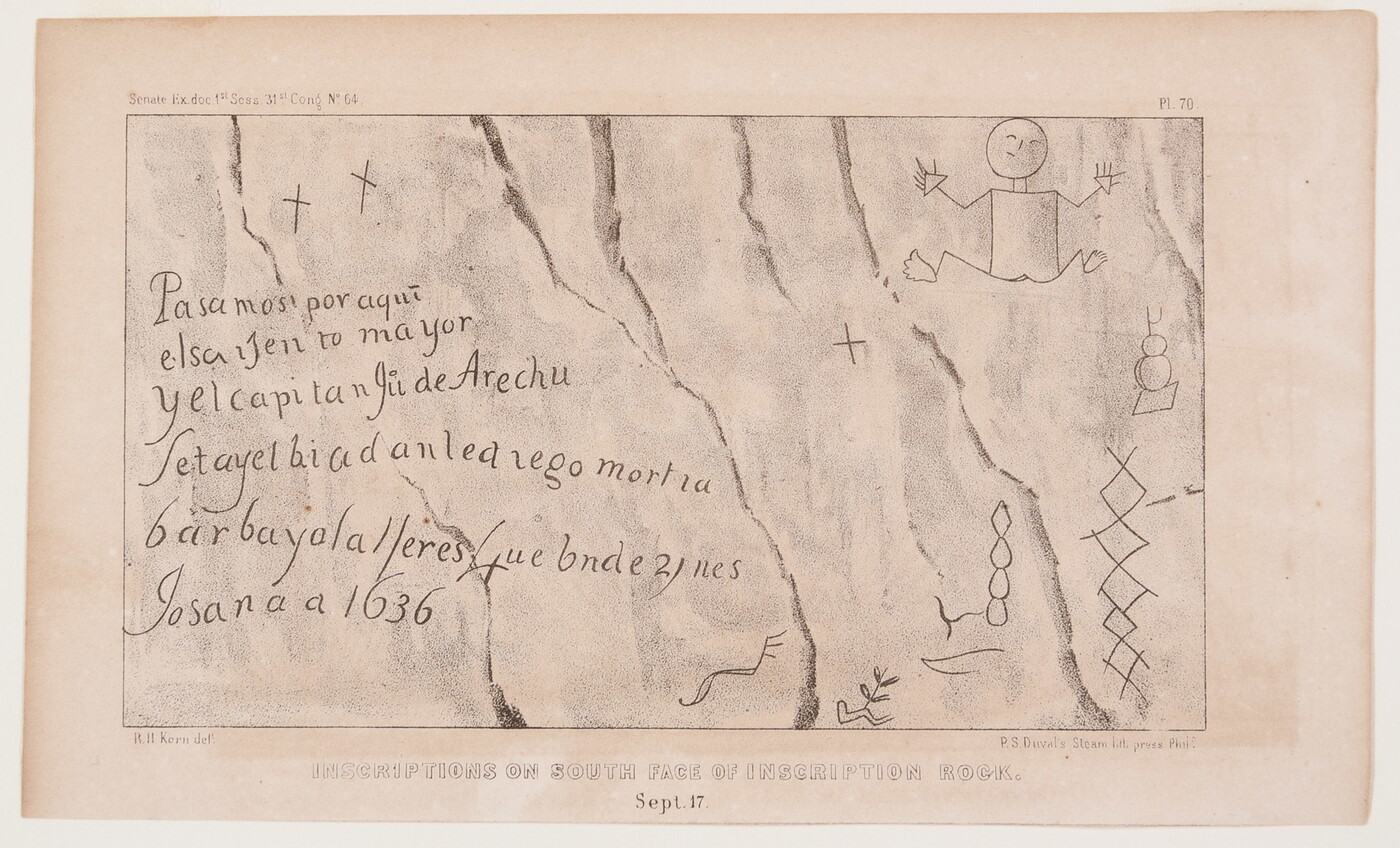 Senate Ex. doc. 1st Sess. 31st Cong. No 64.
Pl. 70
Pasamos por aquī
elsarJen to mayor
yelcapitan Jü de Arechu
setayel biad anled rego mortia
barbayola lferes que bnde
Josana a 1636
R.H Kern delt.
P.S. Duval's Steam lith. press Phila.
INSCRIPTIONS ON SOUTH FACE OF INSCRIPTION ROCK.
Sept. 17.